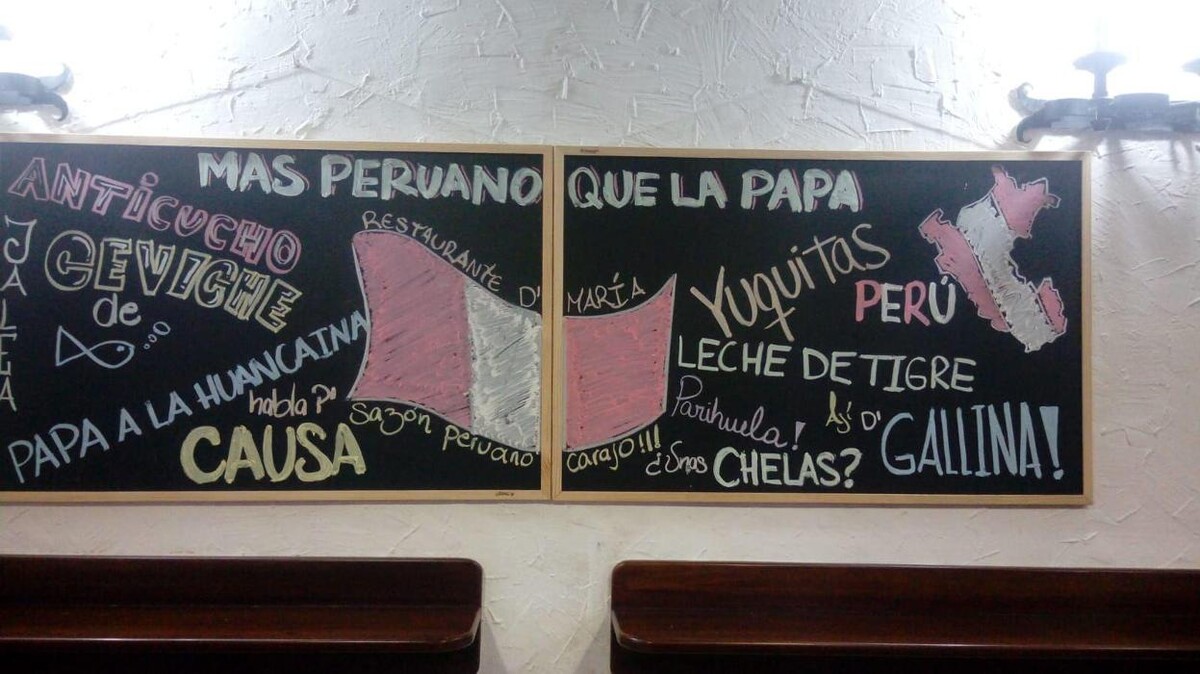 MAS PERUANO QUE LA PAPA
ANTICUCHO
JALEA
CEVICHE
de
PAPA A LA HUANCAINA
habla P'
CAUSA
RESTAURANTE D' MARÍA
sazón peruano carajo!!!
Yuquitas
PERÚ
LECHE DE TIGRE
Parihuela!
Ají D'
GALLINA!
¿Unas
CHELAS?